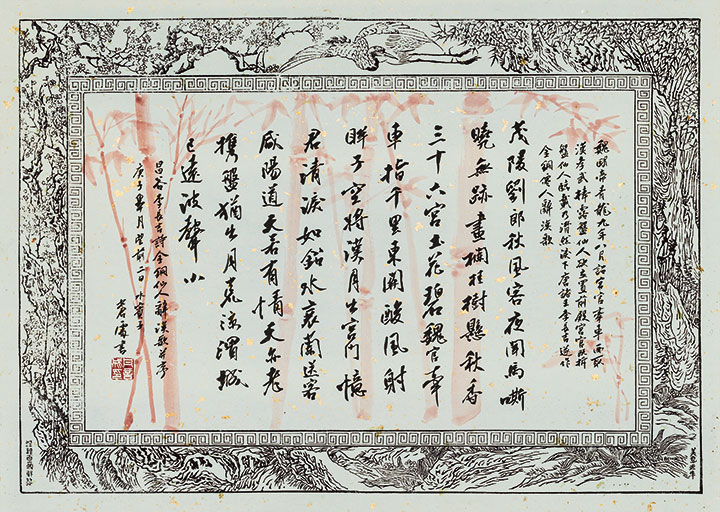 魏明帝青龍九年八月詔宮官牽車西取
漢孝武捧露盤仙人欲立置前殿宮官既拆
盤仙人臨載乃潸然淚下唐諸王李長吉遂作
金銅仙人辭漢歌
茂陵劉郎秋風客夜聞馬嘶
曉無跡畫欄桂樹懸秋香
三十六宮土花碧魏官牽
車指千里東關酸風射
眸子空將漢月出宮門憶
君清淚如鉛水衰蘭送客
咸陽道天若有情天亦老
攜盤獨出月荒涼渭城
已遠波聲小
昌谷李長吉詩金銅仙人辭漢歌并序
庚子月望前二日
書